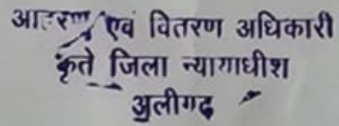 आहरण एवं वितरण अधिकारी
कृते जिला न्यायाधीश
अलीगढ़